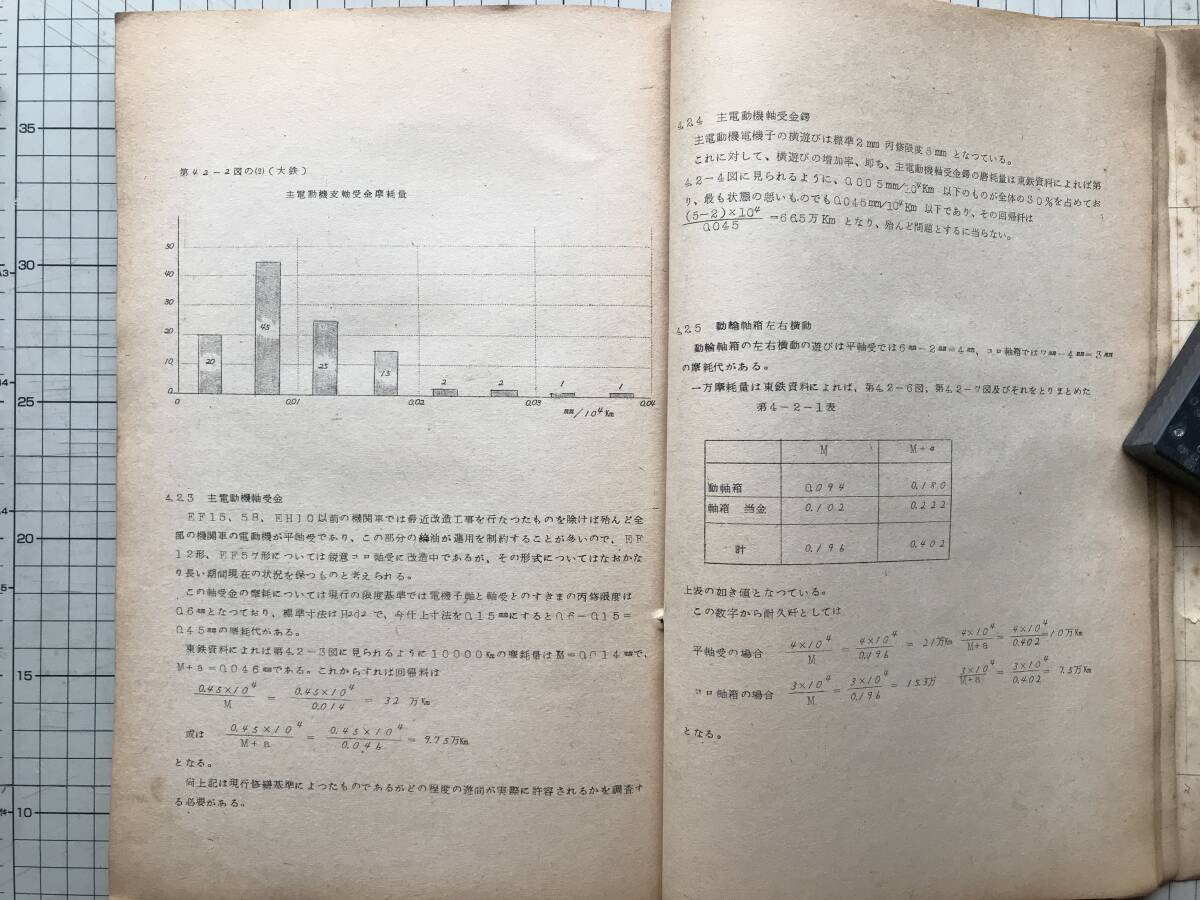 第4.2-2図の(2)(大鉄)
主電動機支軸受金摩耗量
50
40
30
20
10
0
20
45
25
15
2
2
1
1
0
0.01
0.02
0.03
0.04
㎜/10⁴Km
4.2.3 主電動機軸受金
EF15、58、EH10以前の機関車では最近改造工事を行なつたものを除けば殆んど全
部の機関車の電動機が平軸受であり、この部分の給油が運用を制約することが多いので、EF
12形、EF57形については鋭意コロ軸受に改造中であるが、その形式についてはなおかな
り長い期間現在の状況を保つものと考えられる。
この軸受金の摩耗については現行の限度基準では電機子軸と軸受とのすきまの丙修限度は
0.6㎜となつており、標準寸法はH2d2で、今仕上寸法を0.15㎜にすると0.6-0.15=
0.45㎜の摩耗代がある。
東鉄資料によれば第4.2-3図に見られるように10000Kmの摩耗量はM=0.014㎜で、
M+a=0.046㎜である。これからすれば回帰料は
0.45×10⁴/M = 0.45×10⁴/0.014 = 32 万Km
或は 0.45×10⁴/M+a = 0.45×10⁴/0.046 = 9.75万Km
となる。
尚上記は現行修繕基準によつたものであるがどの程度の遊間が実際に許容されるかを調査す
る必要がある。
4.2.4 主電動機軸受金鍔
主電動機電機子の横遊びは標準2mm 丙修限度5mm となつている。
これに対して、横遊びの増加率、即ち、主電動機軸受金鍔の磨耗量は東鉄資料によれば第
4.2-4図に見られるように、0.005mm/10⁴Km 以下のものが全体の30%を占めてお
り、最も状態の悪いものでも0.045mm/10⁴Km 以下であり、その回帰粁は
(5-2)×10⁴/0.045 =66.5万Km となり、殆んど問題とするに当らない。
4.2.5 動輪軸箱左右横動
動輪軸箱の左右横動の遊びは平軸受では6㎜-2㎜=4㎜、コロ軸箱では7㎜-4㎜=3㎜
の摩耗代がある。
一万摩耗量は東鉄資料によれば、第4.2-6図、第4.2-7図及びそれをとりまとめた
第4-2-1表
M M+a
動軸箱 0.094 0.180
軸箱 当金 0.102 0.222
計 0.196 0.402
上表の如き値となつている。
この数字から耐久粁としては
平軸受の場合 4×10⁴/M = 4×10⁴/0.196 = 21万Km 4×10⁴/M+a = 4×10⁴/0.402 =10万Km
コロ軸箱の場合 3×10⁴/M = 3×10⁴/0.196 = 15.3万 3×10⁴/M+a = 3×10⁴/0.402 = 7.5万Km
となる。
35
30
25
20
15
10